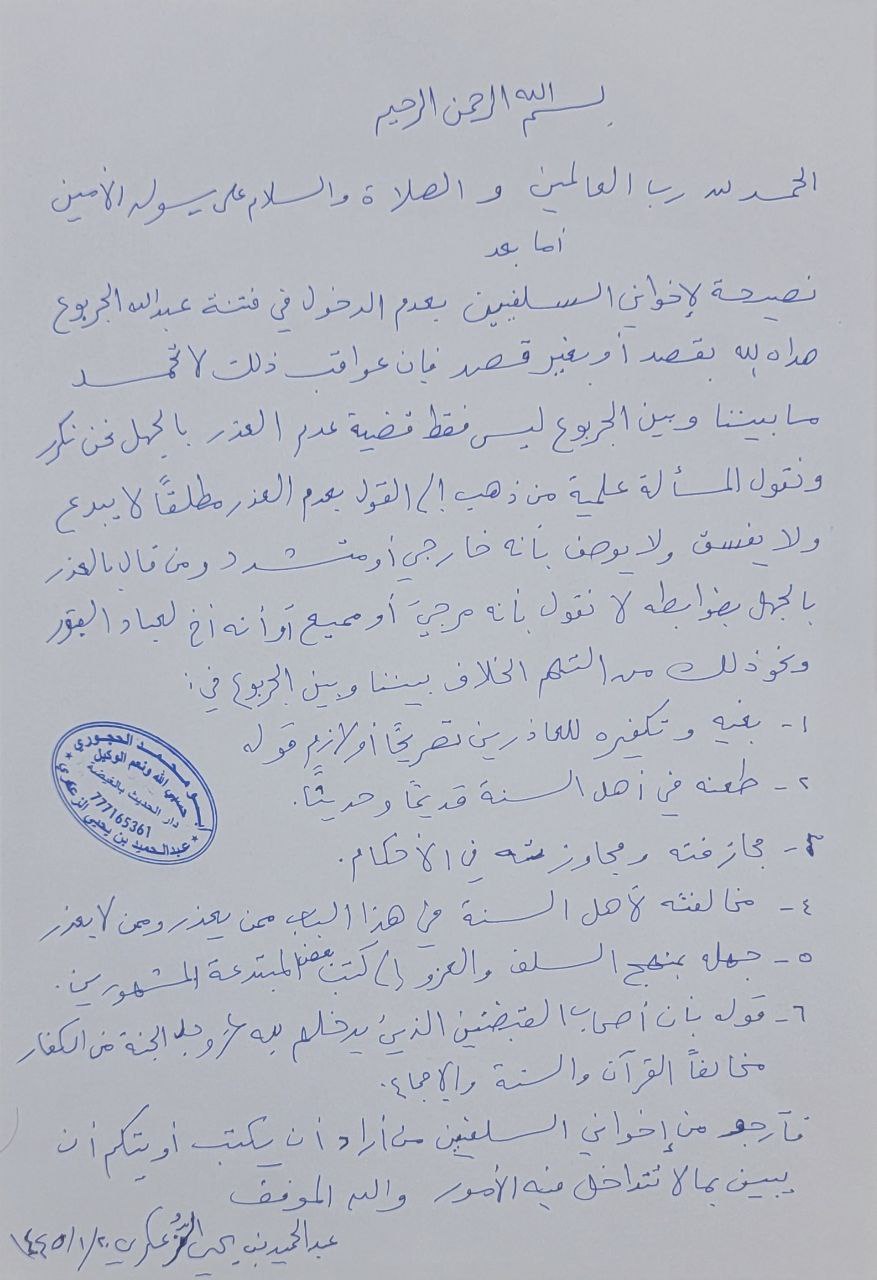 بسم الله الرحمن الرحيم
الحمد لله رب العالمين و الصلاة والسلام على رسوله الأمين
أما بعد
نصيحة لإخواني السلفيين بعدم الدخول في فتنة عبدالله الجربوع
هداه الله بقصد أو بغير قصد فإن عواقب ذلك لا تحمد
ما بيننا وبين الجربوع ليس فقط قضية عدم العذر بالجهل نحن نكرر
ونقول المسألة علمية من ذهب إلى القول بعدم العذر مطلقاً لا يبدع
ولا يفسق ولا يوصف بأنه خارجي أو متشدد ومن قال بالعذر
بالجهل بضوابطه لا نقول بأنه مرجئ أو مميع أو أنه أخ لعباد القبور
ونحو ذلك من التهم الخلاف بيننا وبين الجربوع في:
١- بغيه وتكفيره للعاذرين تصريحًا أو لازم قوله
٢- طعنه في أهل السنة قديمًا وحديثًا.
٣- مجازفته ومجاوزته في الأحكام.
٤- مخالفته لأهل السنة في هذا الباب ممن يعذر وممن لا يعذر
٥- جهله بمنهج السلف والعزو إلى كتب بعض المبتدعة المشهورين.
٦- قوله بأن أصحاب القبضتين الذين يدخلهم الله عز وجل الجنة من الكفار
مخالفاً القرآن والسنة والإجماع.
فأرجو من إخواني السلفيين من أراد أن يكتب أو يتكلم أن
يبين بما لا تتداخل فيه الأمور والله الموفق
عبدالحميد بن يحيى الزعكري ١٤٤٥/١/٢٠
أبو محمد الحجوري
حسبي الله ونعم الوكيل
دار الحديث بالغيضة
777165361
عبدالحميد بن يحيى الزعكري